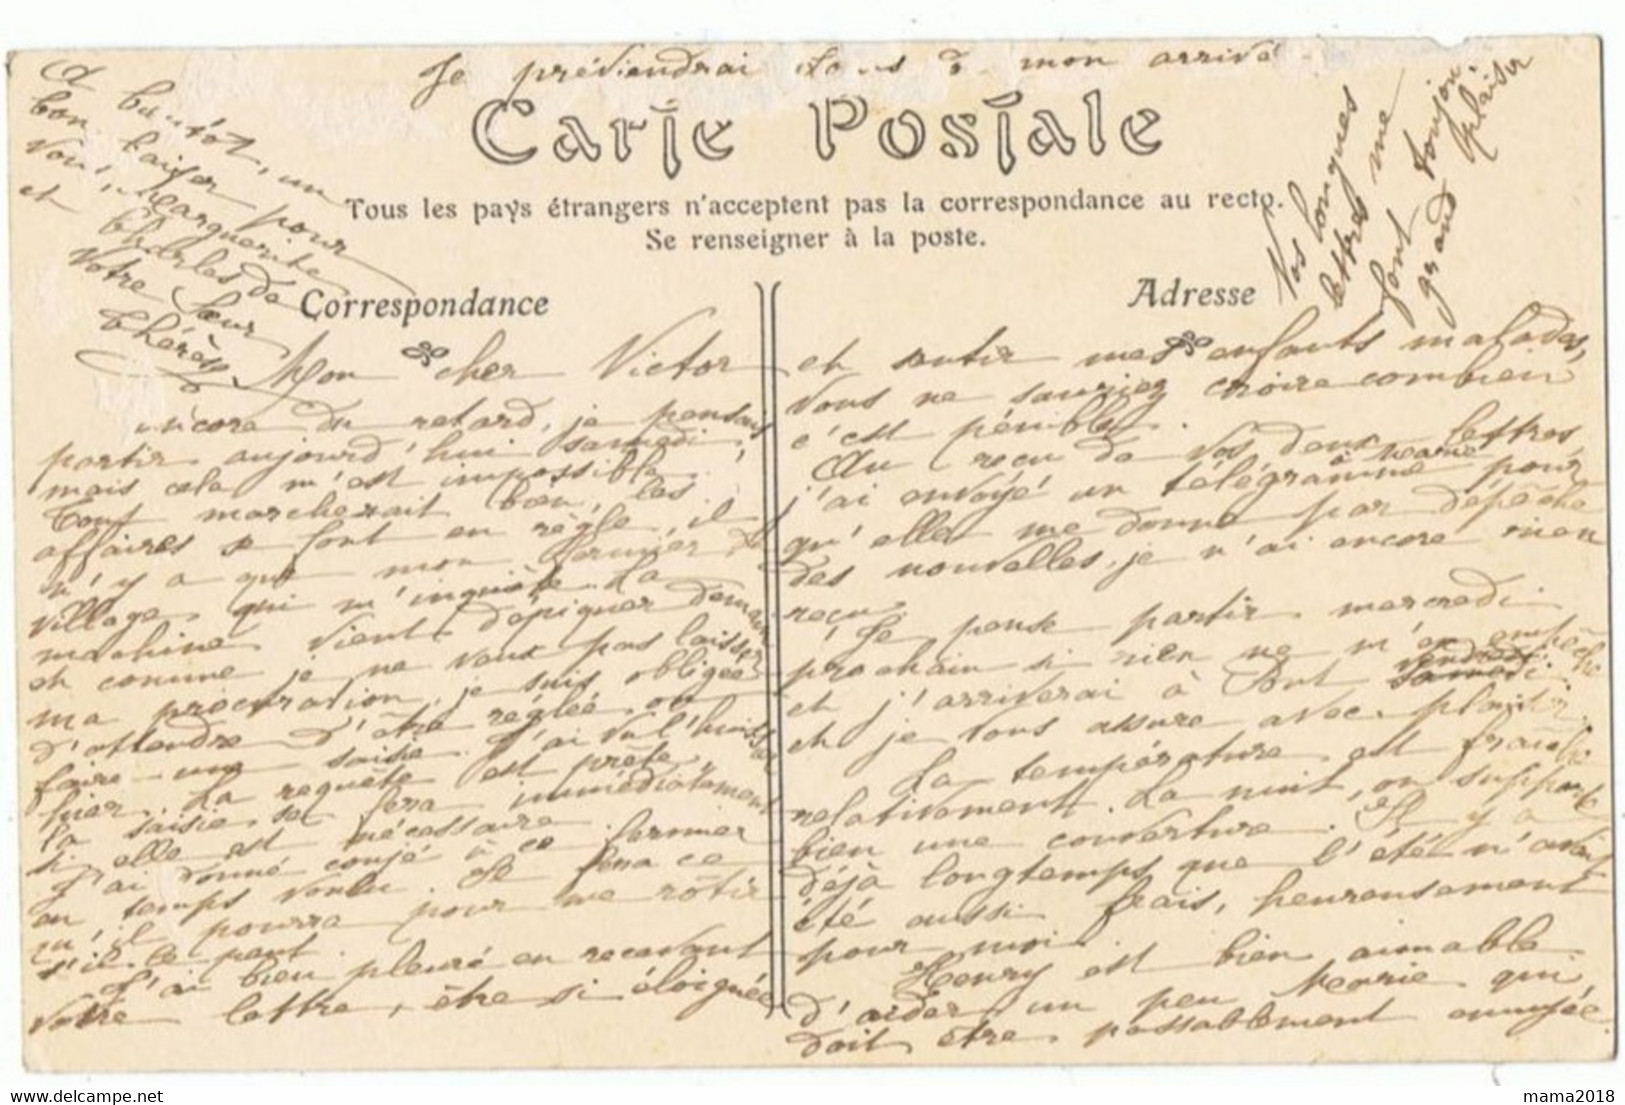 Je préviendrai de mon arrivé
Carte Postale
Tous les pays étrangers n'acceptent pas la correspondance au recto.
Se renseigner à la poste.
Correspondance
Adresse
Mon cher Victor
encore du retard, je pensais
partir aujourd'hui samedi,
mais cela m'est impossible.
Tout marcherait bien, les
affaires se font en règle, il
n'y a que mon fermier du
village qui m'inquiète. La
machine vient dépiquer demain
et comme je ne veux pas laisser
ma procuration, je suis obligée
d'attendre d'être reglée, ou
faire une saisie. J'ai vu l'huissier
hier. La requête est prête,
la saisie se fera immédiatement
si elle est nécessaire.
J'ai donné congé à ce fermier
en temps voulu. Il fera ce
qu'il pourra pour me rôtir
s'il le peut.
J'ai bien pleuré en recevant
votre lettre, être si éloignée
et sentir mes enfants malades,
vous ne sauriez croire combien
c'est pénible.
Au reçu de vos deux lettres,
j'ai envoyé un télégramme à Marie pour
qu'elle me donne par dépêche
des nouvelles, je n'ai encore rien
reçu.
Je pense partir mercredi
prochain si rien ne m'en empêche
et j'arriverai à Pont samedi vendredi
et je vous assure avec plaisir.
La température est fraîche
relativement. La nuit, on supporte
bien une couverture. Il y a
déjà longtemps que l'été n'avait
été aussi frais, heureusement
pour moi.
Henry est bien aimable
d'aider un peu Marie qui
doit être passablement ennuyée.
Vos longues
lettres me
font toujours
grand plaisir
A bientôt, un
bon baiser pour
vous, Marguerite
et Charles de
votre sœur
Thérèse
mama2018